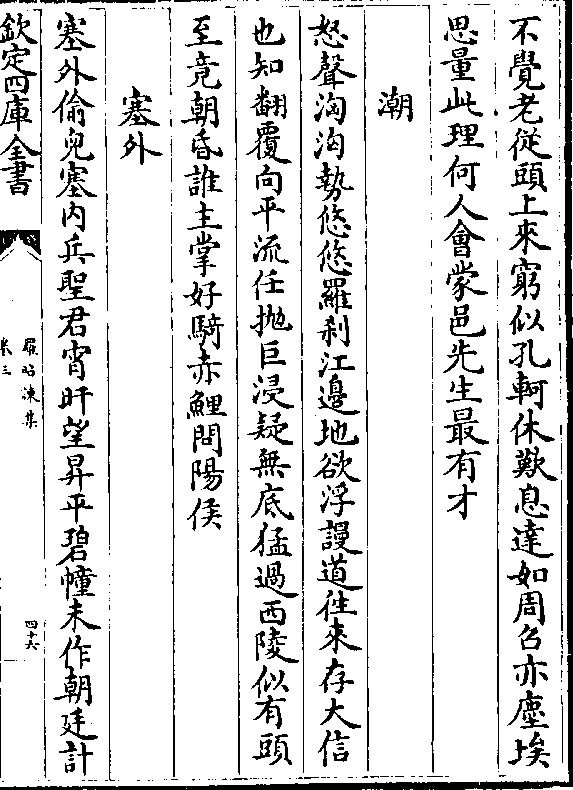 不覺老從頭上來窮似孔軻休歎息達如周召亦塵埃
思量此理何人會蒙邑先生最有才
潮
怒聲洶洶勢悠悠羅刹江邊地欲浮謾道徃來存大信
也知翻覆向平流任抛巨浸疑無底猛過西陵似有頭
至竟朝昏誰主掌好騎赤鯉問陽侯
塞外
塞外偷兒塞内兵聖君宵旰望昇平碧幢未作朝廷計
欽定四庫全書
羅昭諫集
卷三
四十六